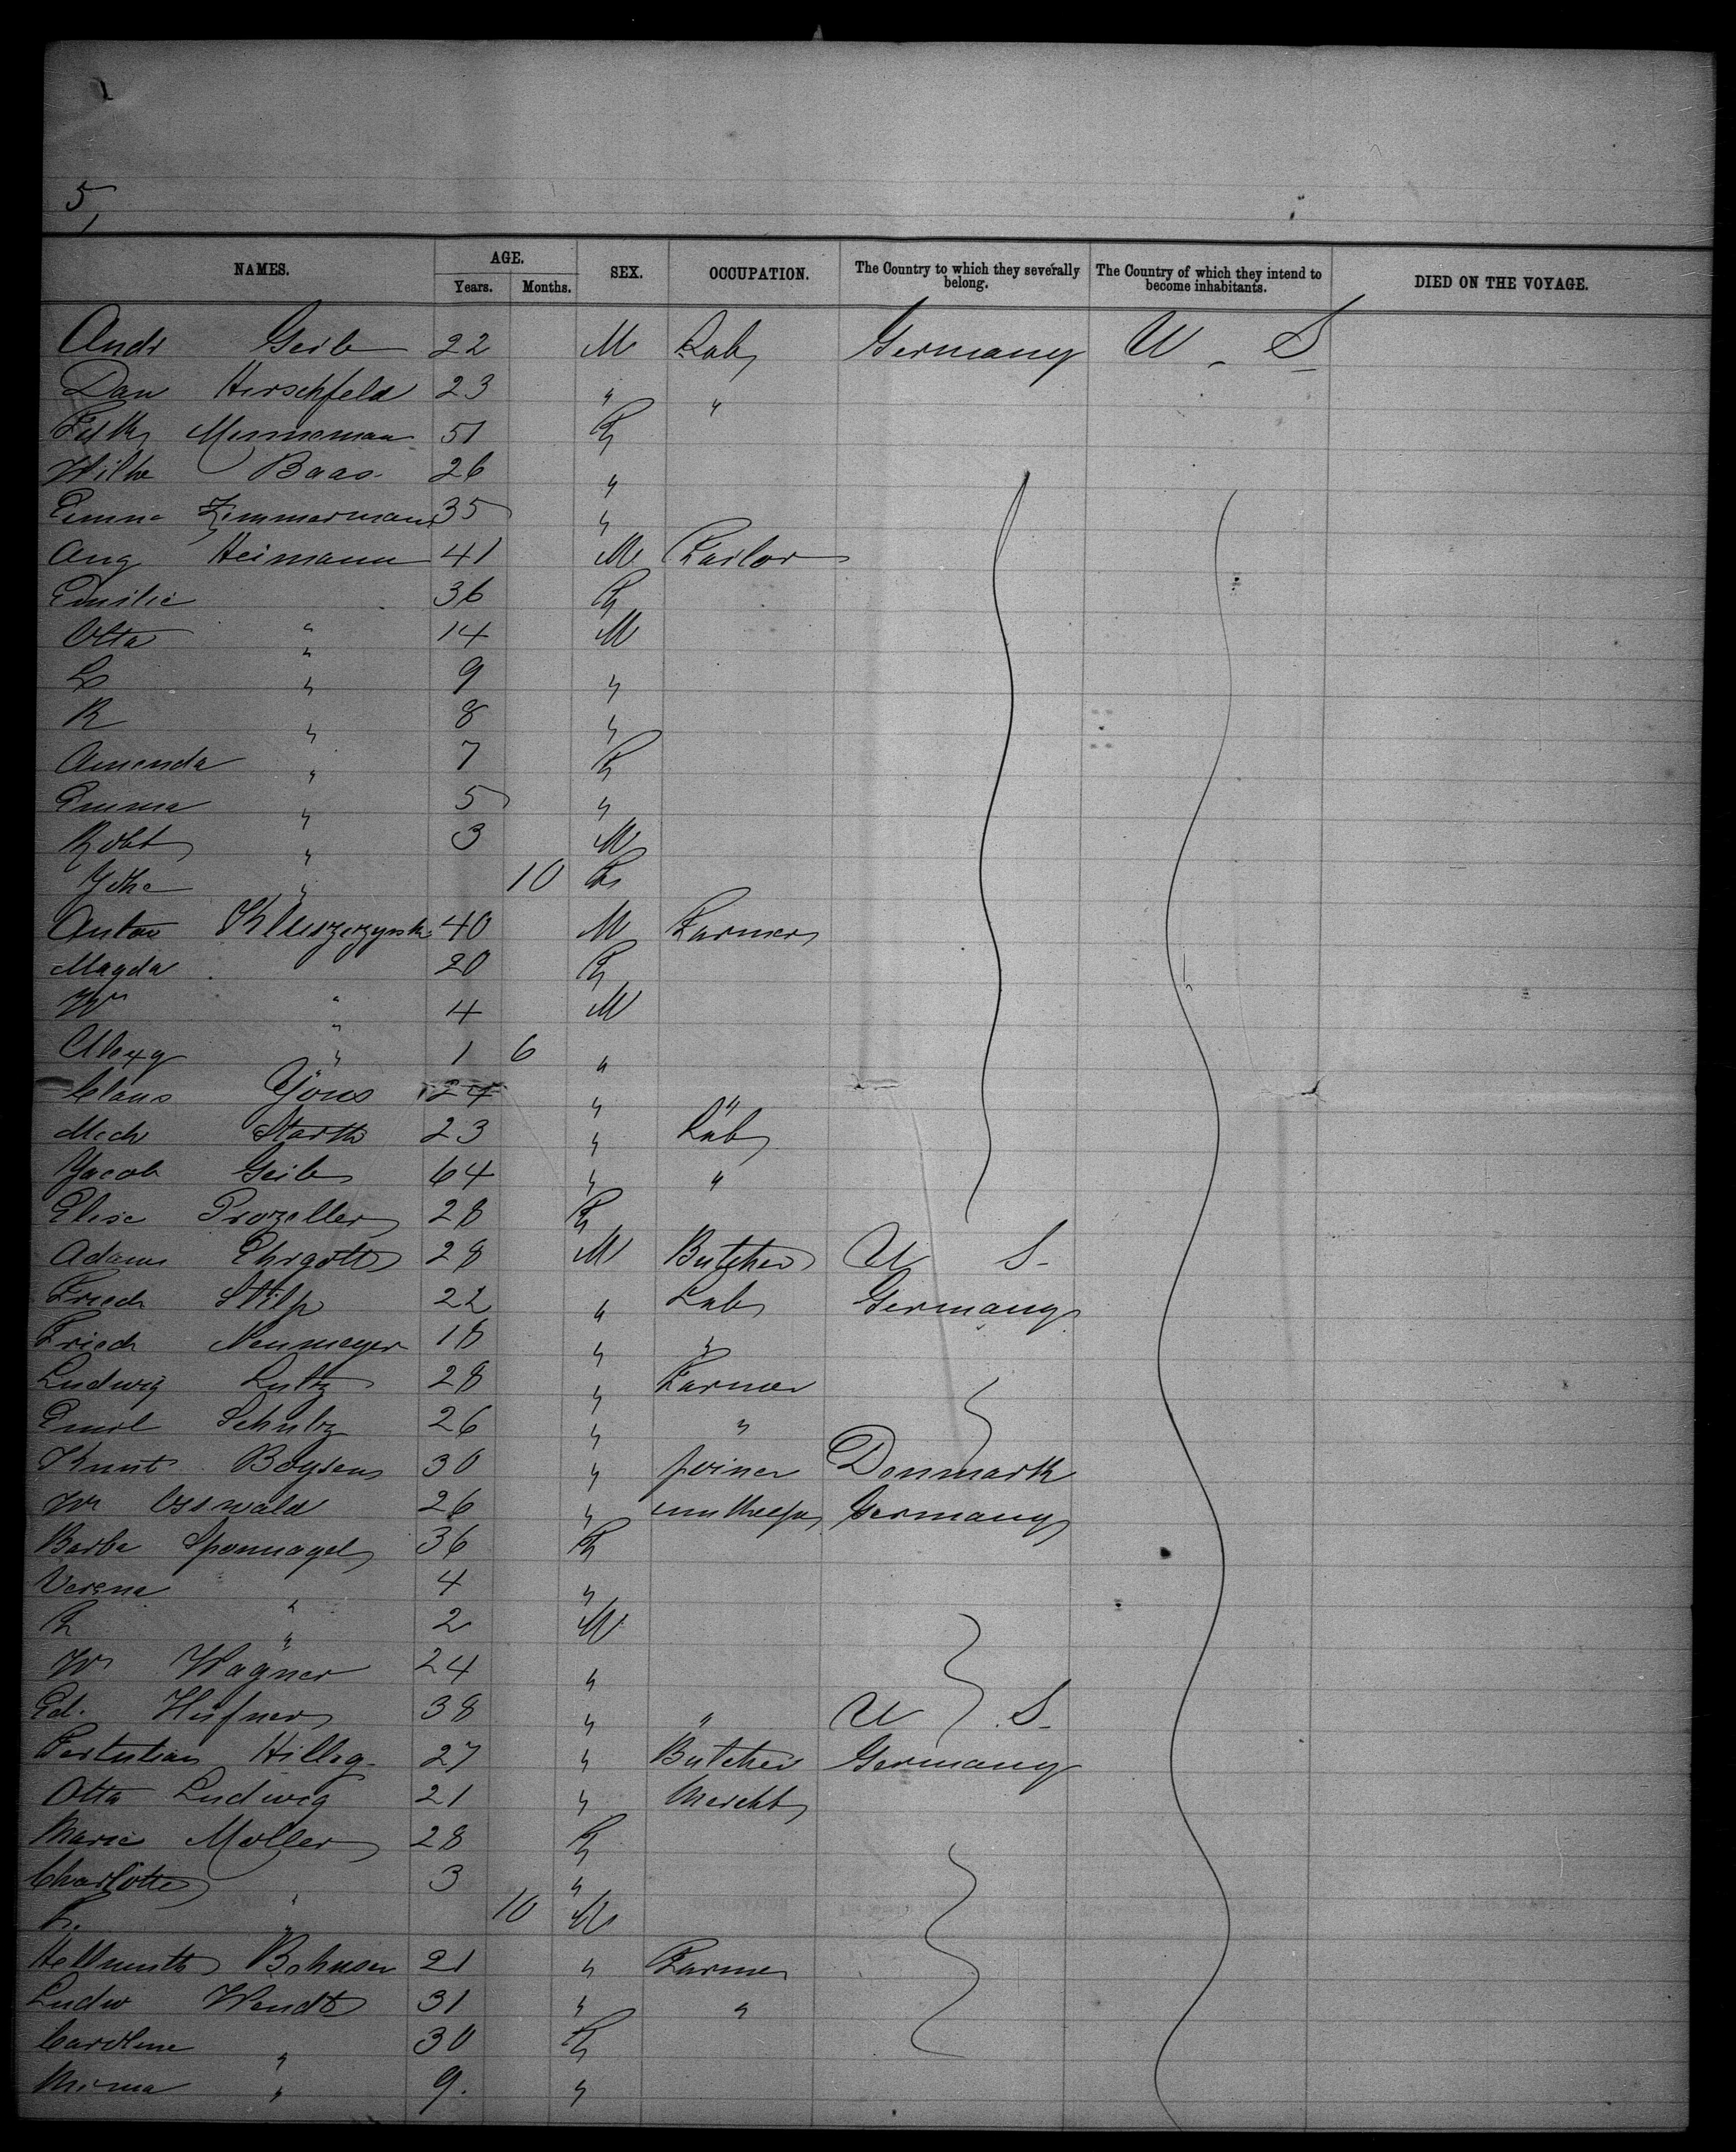 5,
NAMES. AGE. SEX. OCCUPATION. The Country to which they severally belong. The Country of which they intend to become inhabitants. DIED ON THE VOYAGE.
Years. Months.
Andr Geib 22 M Lab Germany U - S
Dan Hirschfeld 23 " "
51 F
Wilhe Baas 26 "
Emma Zimmermann 35 "
Aug Heimann 41 M Tailor
Emilie " 36 F
Otto " 14 M
L " 9 "
R " 8 "
Amenda " 7 F
Emma " 5 "
Robt " 3 M
" 10 F
Anton 40 M Farmer
Magda " 20 F
Wm " 4 M
" 1 6 "
Claus Göns 24 " "
Mich Starth 23 " Lab
Jacob Geib 64 " "
Elise Prozeller 28 F
Adam Ehrgott 28 M Butcher U S-
Friedr Stilp 22 " Lab Germany
Friedr Neumeyer 18 " "
Ludwig Lutz 28 " Farmer
Emil Schultz 26 " "
Knut Boysens 30 " joiner Denmark
Wm Osswald 26 " Germany
Barba Sponnagel 36 F
Verena " 4 "
F " 2 M
Wm Wagner 24 "
Ed. Hüfner 38 " " U S-
Hilleg 27 " Butcher Germany
Otto Ludwig 21 " Mercht
Marie Moller 28 F
Charlotte " 3 "
" 10 M
Hellmuth Bohnsen 21 " Farmer
Ludw Wendt 31 " "
Caroline " 30 F
Minna " 9. "